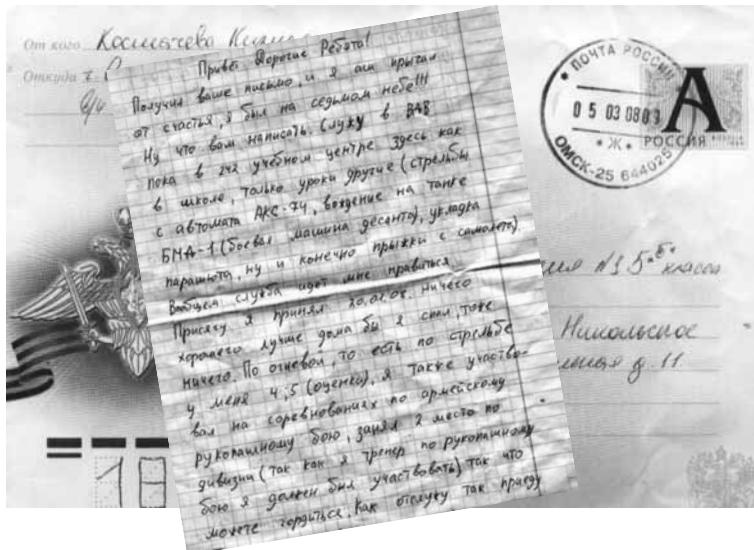 От кого Космачева
Откуда г.
в/ч
ПОЧТА РОССИИ
05 03 08
* Ж *
ОМСК-25 644025
А
РОССИЯ
Привет Дорогие Ребята!
Получил ваше письмо, и я аш прыгал
от счастья, я был на седьмом небе!!!
Ну что вам написать. Служу в ВДВ
пока в 242 учебном центре здесь как
в школе, только уроки другие (стрельбы
с автомата АКС-74, вождение на танке
БМД-1 (боевая машина десанта), укладка
парашюта, ну и конечно прыжки с самолета).
Вообщем служба идет мне нравиться
Присягу я принял 20.01.08. Ничего
хорошего лучше дома бы я спал, тоже
ничего. По огневой, то есть по стрельбе
у меня 4,5 (оценка), я также участво-
вал на соревнованиях по армейскому
рукопашному бою, занял 2 место по
дивизии (так как я тренер по рукопашному
бою я должен был участвовать) так что
можете гордиться. Как отслужу так приеду
№1 5"б" класса
Никольское
д. 11